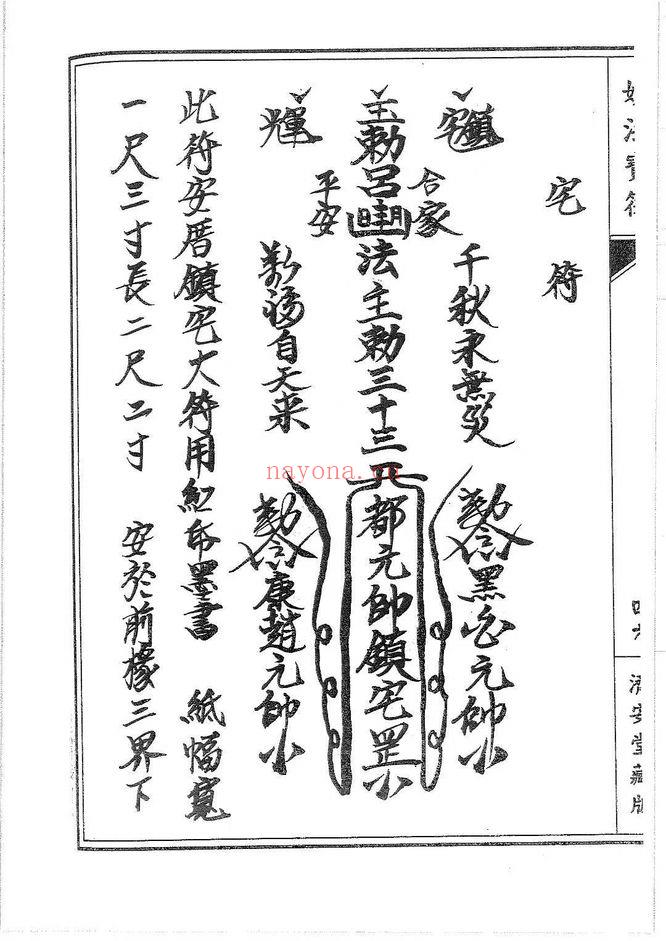 濟安堂藏版
宅符
鎮宅
千秋永無災
元帥
合家
勅呂
法主勅三十三天都元帥鎮宅罡
平安
萬福自天来
康趙元帥
此符安厝鎮宅大符用紅布墨書 紙幅寬
一尺三寸長二尺二寸 安於前椽三界下
nayona.cn